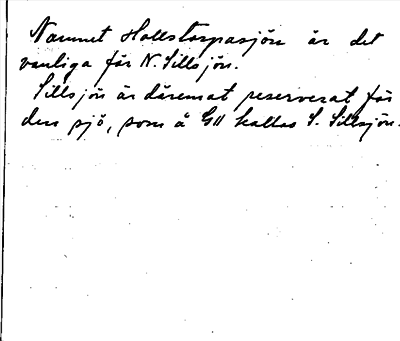 Namnet Hallstorpasjön är det
vanliga för N. Sillsjön.
Sillsjön är däremot reserverat för
den sjö, som å GH kallas S. Sillsjön.